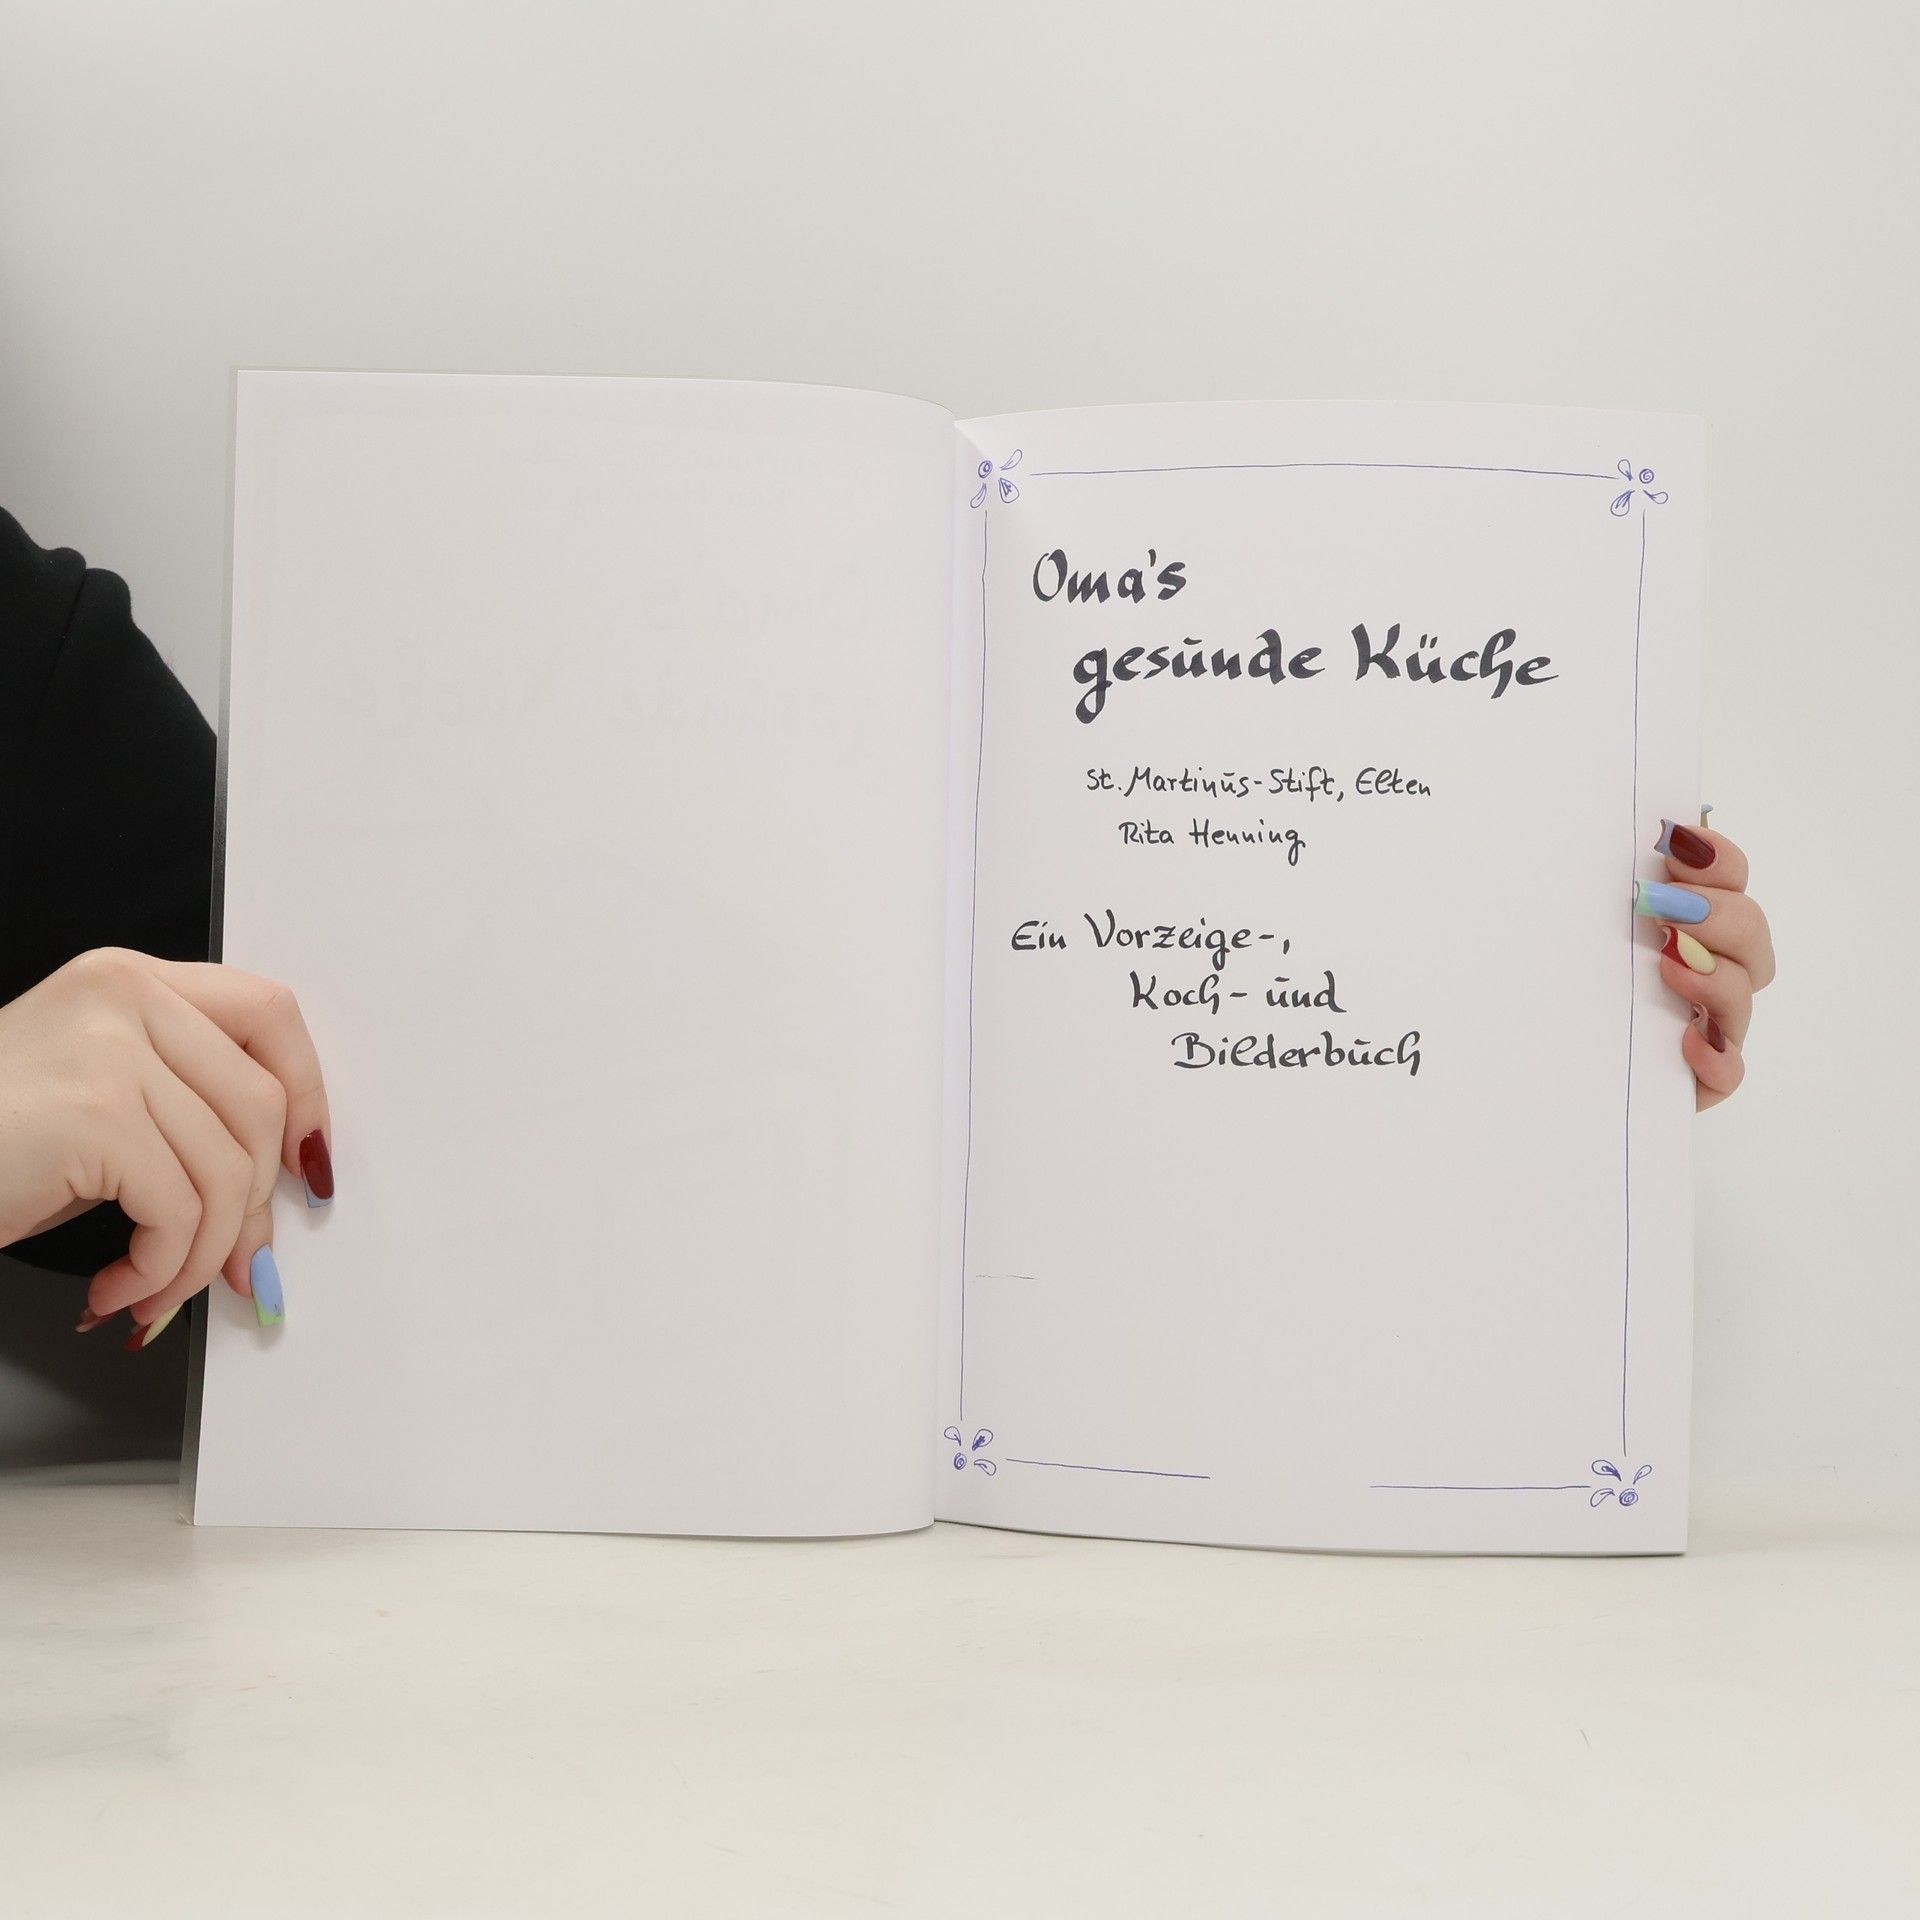 Oma's
gesunde Küche
St. Martinus-Stift, Elten
Rita Henning
Ein Vorzeige-,
Koch- und
Bilderbuch